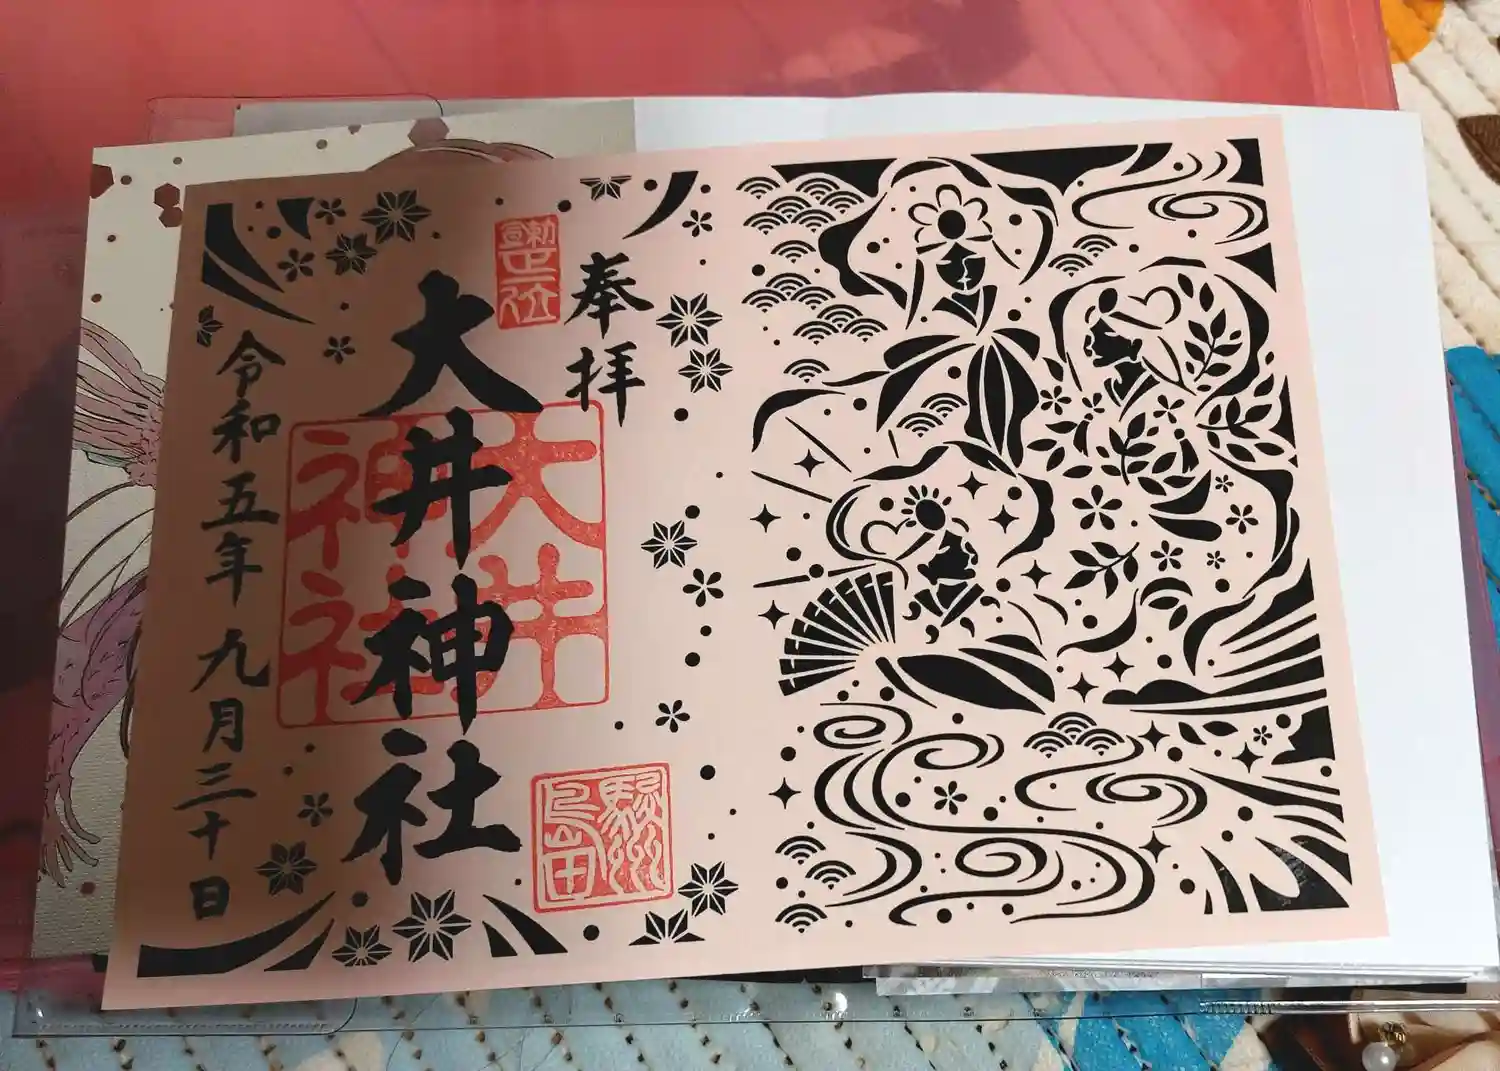 奉拝
勅正二位
大井神社
大井神社
駿州島田
令和五年 九月三十日